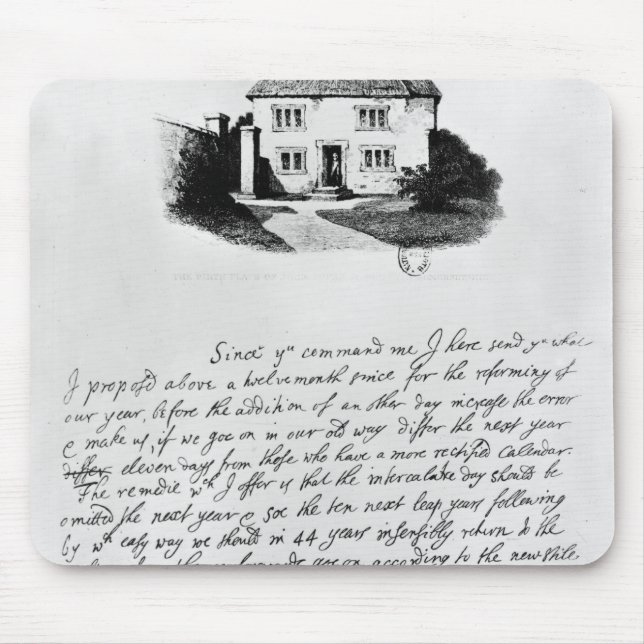 THE BIRTH PLACE OF JOHN LOCKE
Since yu command me I here send yu what
I propos'd above a twelvemonth since for the reforming of
our year, before the addition of an other day increase the error
& make us, if we goe on in our old way differ the next year
differ eleven days from those who have a more rectified Calendar.
The remedie wch I offer is that the intercalare day should be
omitted the next year & soe the ten next leap years following
by wch easy way we should in 44 years insensibly return to the
goe on according to the new stile